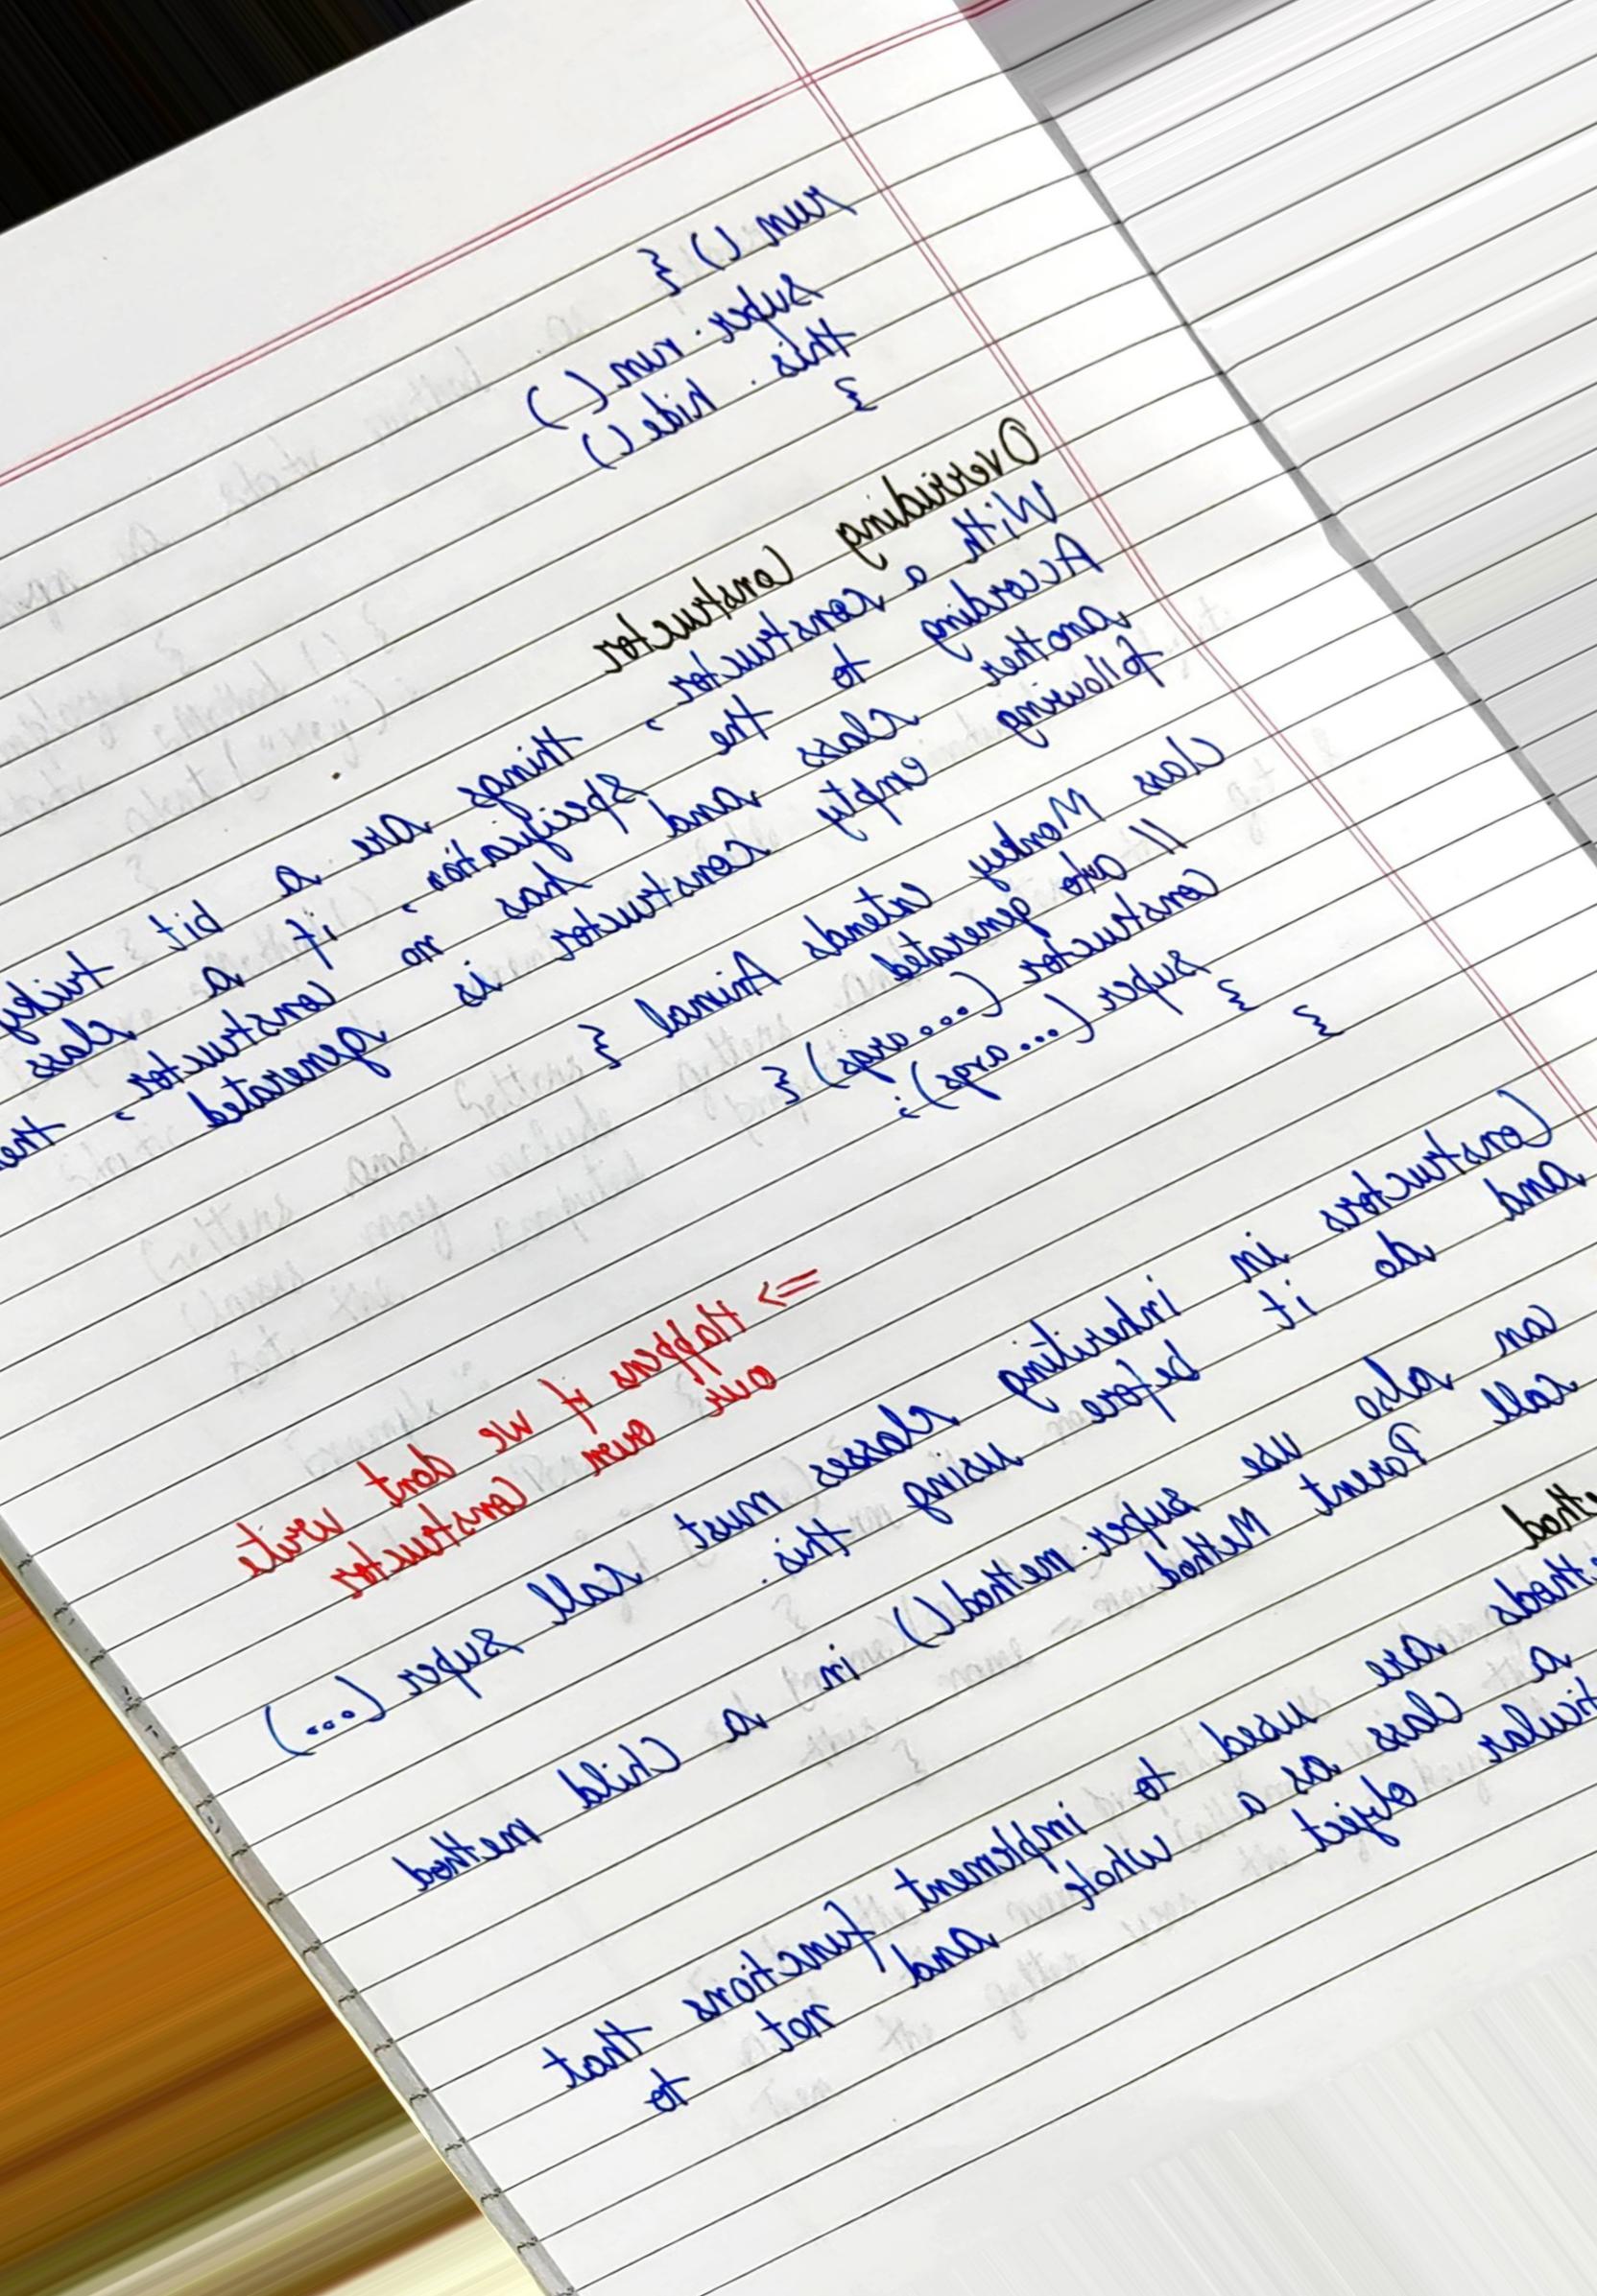 run () {
super.run ( )
this. hide ()
}
Overriding Constructor
With a constructor, things are a bit tricky
According to the specification, if a class
another class and has no constructor, the
following empty constructor is generated
class Monkey extends Animal {
// auto generated
constructor (...args) {
super (...args);
}
}
=> Happens if we dont write
our own constructor
Constructors in inheriting classes must call super (...)
and do it before using this.
can also use super.method() in a Child method
call Parent Method
are used to implement functions that
a class as a whole and not to
object